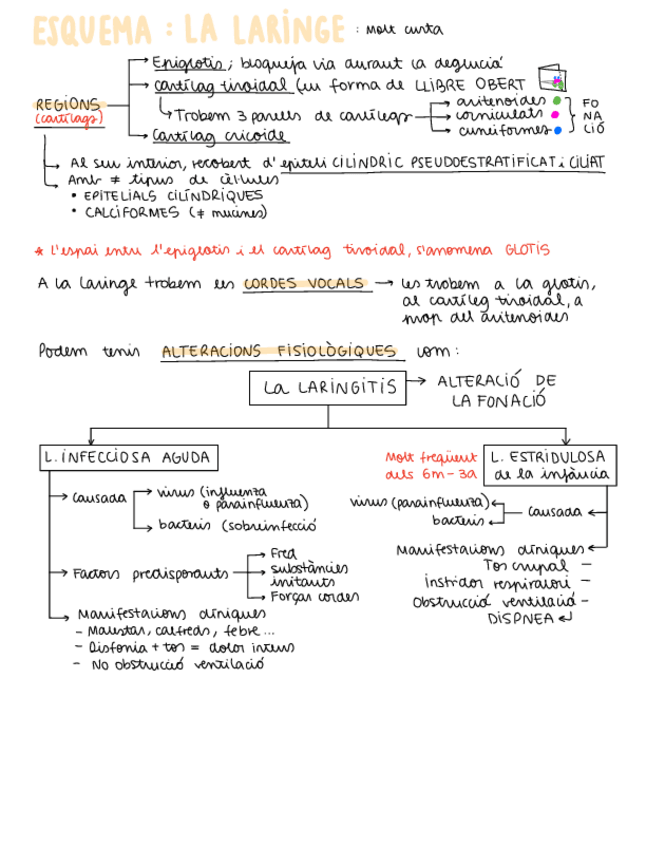 ESQUEMA : LA LARINGE : Molt curta
Epiglotis; bloqueja via durant la deglució
REGIONS
(cartílags)
cartílag tiroidal (en forma de LLIBRE OBERT
Trobem 3 parells de cartílags
aritenoides
corniculats
cuneïformes
FO
NA
CIÓ
Cartílag cricoide
Al seu interior, recobert d'epiteli CILÍNDRIC PSEUDOESTRATIFICAT i CILIAT
Amb ≠ tipus de cèl·lules
• EPITELIALS CILÍNDRIQUES
• CALCIFORMES (≠ mucines)
* L'espai entre l'epiglotis i el cartílag tiroidal, s'anomena GLOTIS
A la laringe trobem les CORDES VOCALS → Les trobem a la glotis,
al cartíleg tiroidal, a
prop del aritenoides
Podem tenir ALTERACIONS FISIOLÒGIQUES com:
La LARINGITIS → ALTERACIÓ DE
LA FONACIÓ
L. INFECCIOSA AGUDA
causada
virus (influenza
o parainfluenza)
bacteris (sobreinfecció
Factors predisposants
Fred
substàncies
irritants
Forçar cordes
Manifestacions clíniques
- Malestar, calfreds, febre...
- Disfonia + tos = dolor intens
- No obstrucció ventilació
Molt freqüent
dels 6m-3a
L. ESTRIDULOSA
de la infància
causada
virus (parainfluenza)
bacteris
Manifestacions clíniques
Tos crupal -
Instridor respiratori -
Obstrucció ventilació -
DISPNEA